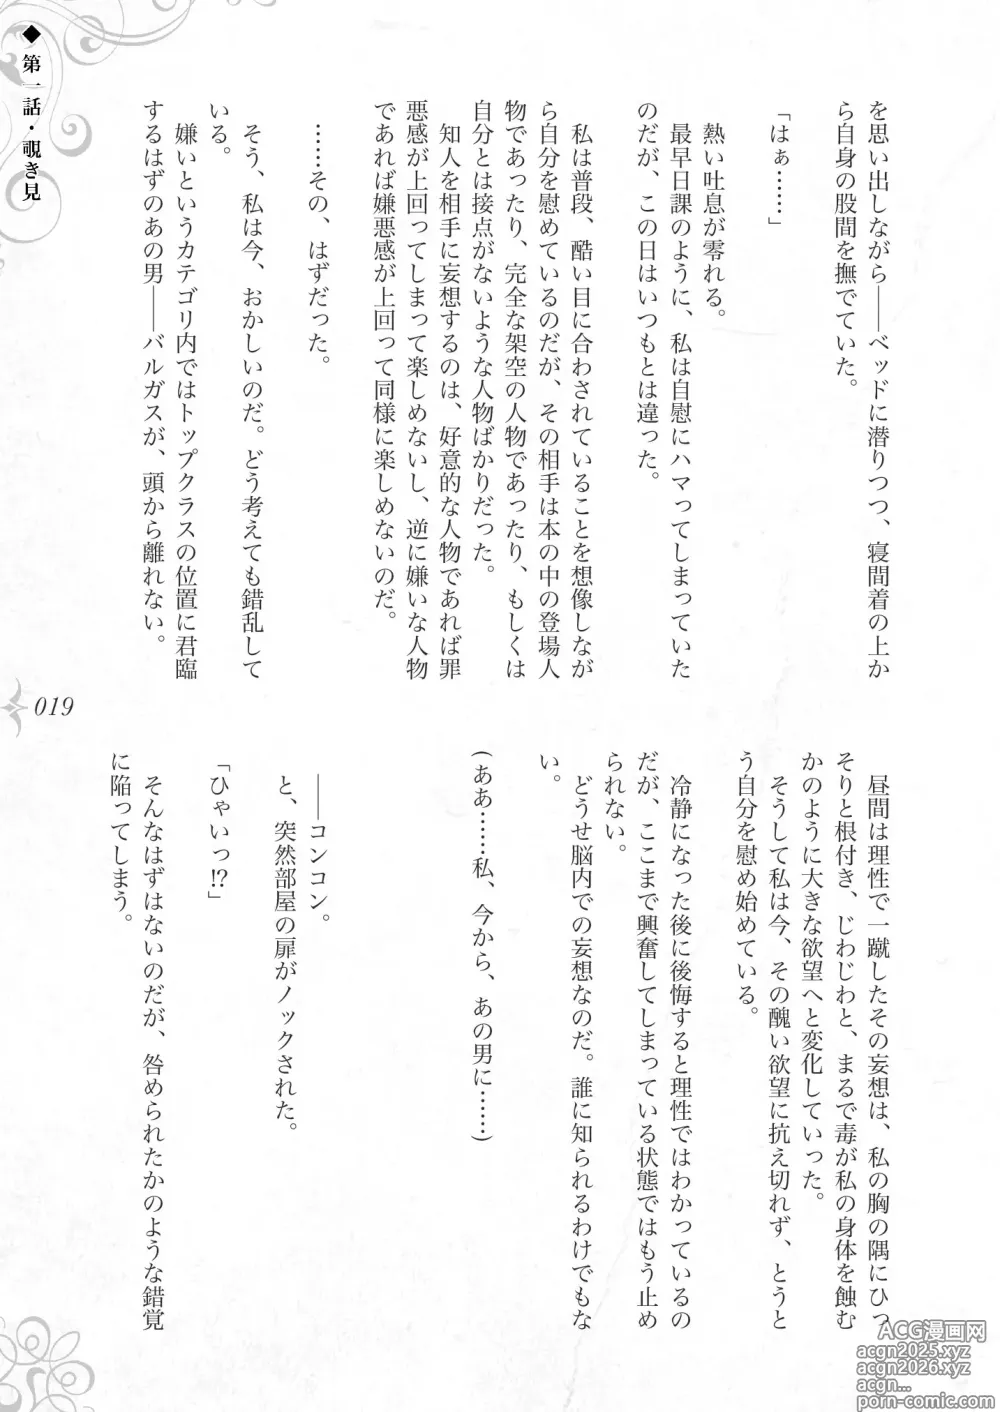 ◆ 第一話・覗き見
を思い出しながら――ベッドに潜りつつ、寝間着の上か
ら自身の股間を撫でていた。
「はぁ……」
熱い吐息が零れる。
最早日課のように、私は自慰にハマってしまっていた
のだが、この日はいつもとは違った。
私は普段、酷い目に合わされていることを想像しなが
ら自分を慰めているのだが、その相手は本の中の登場人
物であったり、完全な架空の人物であったり、もしくは
自分とは接点がないような人物ばかりだった。
知人を相手に妄想するのは、好意的な人物であれば罪
悪感が上回ってしまって楽しめないし、逆に嫌いな人物
であれば嫌悪感が上回って同様に楽しめないのだ。
……その、はずだった。
そう、私は今、おかしいのだ。どう考えても錯乱して
いる。
嫌いというカテゴリ内ではトップクラスの位置に君臨
するはずのあの男――バルガスが、頭から離れない。
昼間は理性で一蹴したその妄想は、私の胸の隅にひっ
そりと根付き、じわじわと、まるで毒が私の身体を蝕む
かのように大きな欲望へと変化していった。
そうして私は今、その醜い欲望に抗え切れず、とうと
う自分を慰め始めている。
冷静になった後に後悔すると理性ではわかっているの
だが、ここまで興奮してしまっている状態ではもう止め
られない。
どうせ脳内での妄想なのだ。誰に知られるわけでもな
い。
(ああ……私、今から、あの男に……)
――コンコン。
と、突然部屋の扉がノックされた。
「ひゃいっ!?」
そんなはずはないのだが、咎められたかのような錯覚
に陥ってしまう。
019
ACG漫画网
acgn2025.xyz
acgn2026.xyz
acgn...
porn-comic.com